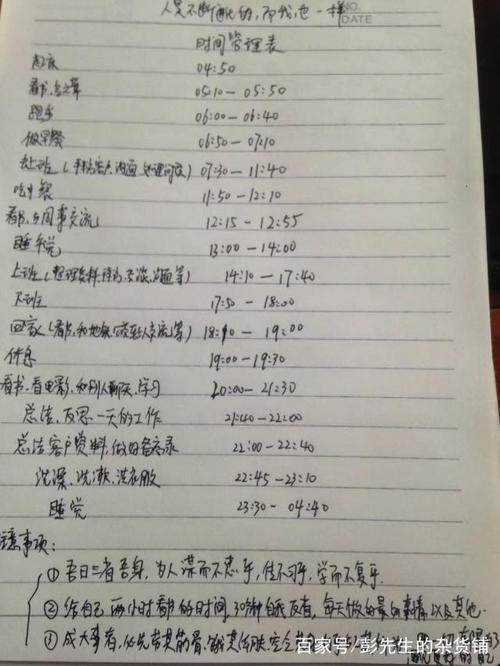 人是不断进化的，而我也一样
NO.
DATE
时间管理表
起床 04:50
看书, 05:10-05:50
跑步 06:00-06:40
做早餐 06:50-07:10
去上班(客户沟通,处理问题) 07:30-11:40
吃中餐 11:50-12:10
看书,与同事交流 12:15-12:55
睡午觉 13:00-14:00
上班(整理资料,沟通等) 14:10-17:40
下班 17:50-18:00
回家(看书,和地铁交流等) 18:10-19:00
休息 19:00-19:30
看书.看电影.和别人聊天.学习 20:00-21:30
总结,反思一天的工作 21:40-22:00
总结客户资料,做好备忘录 22:00-22:40
洗澡,洗漱,洗衣服 22:45-23:10
睡觉 23:30-04:40
注意事项:
①吾日三省吾身,为人谋而不忠乎,信不习乎,学而不复乎.
②给自己两小时看书的时间,30分钟自我反省,每天做的最好的事情,以及其他.
①成大事者,必先苦其筋骨,
百家号/彭先生的杂货铺